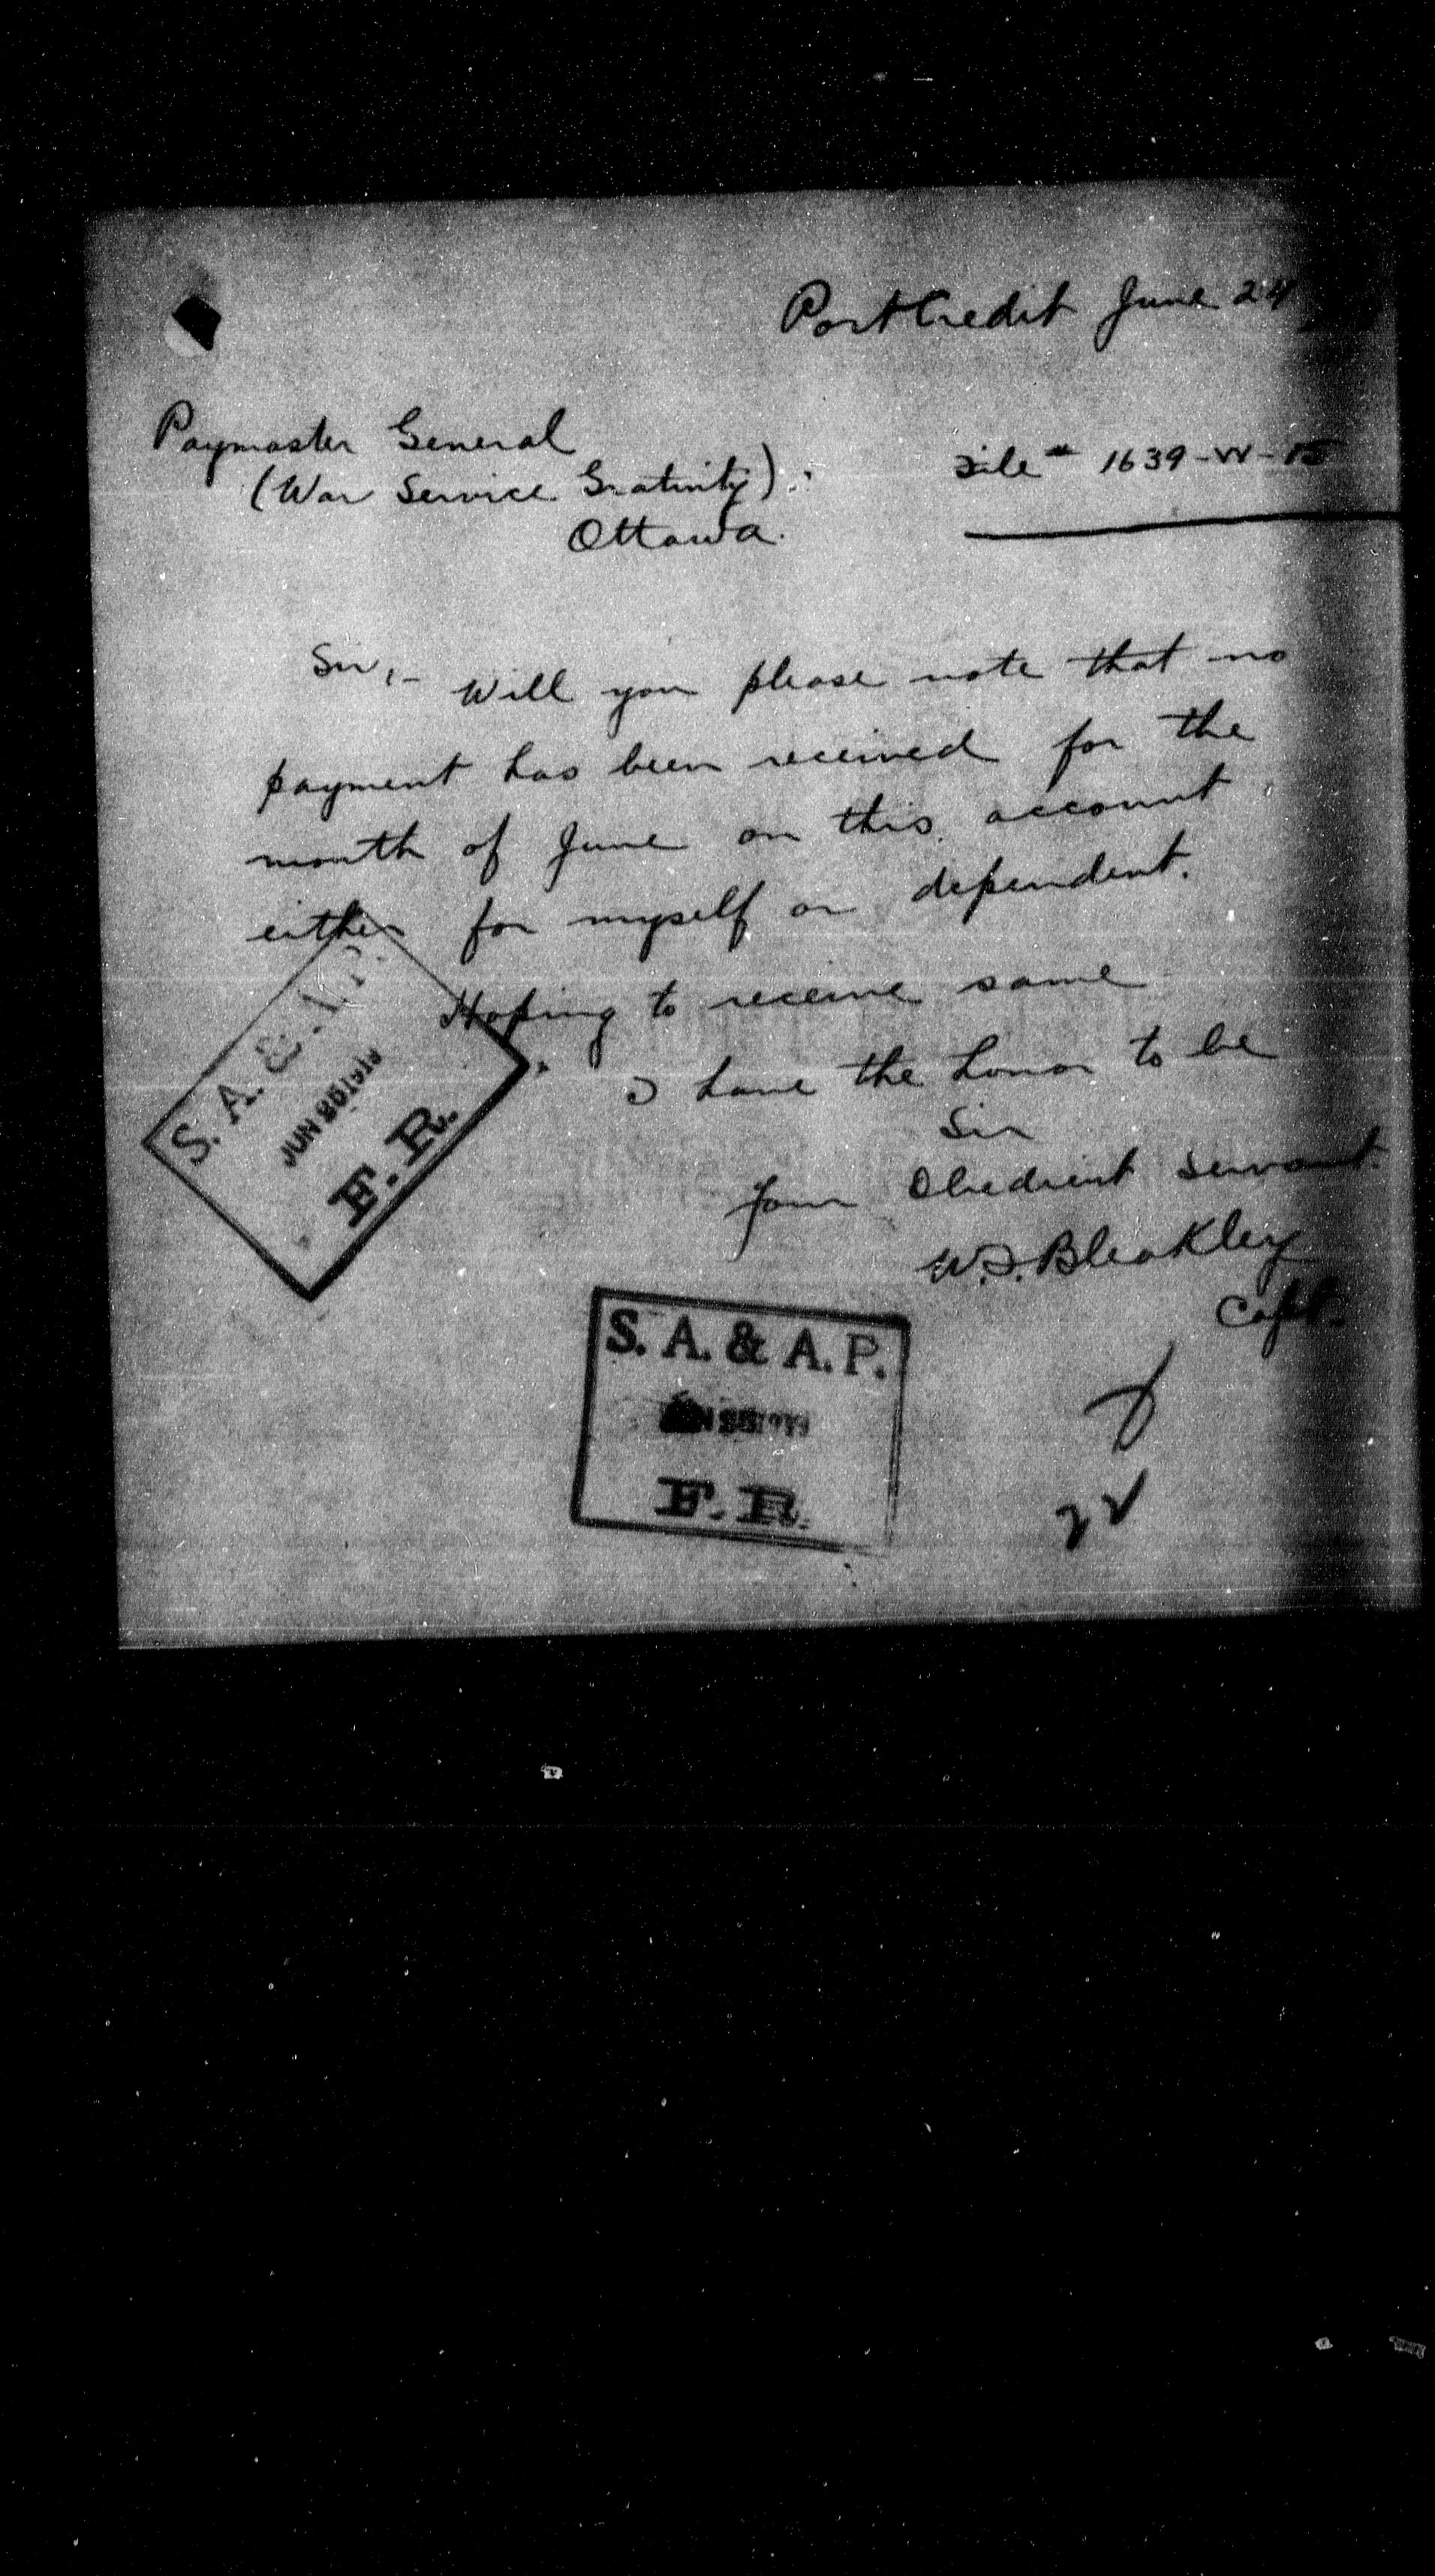 Port Credit June 24
Paymaster General
(War Service Gratuity).
File # 1639-W-15
Ottawa.
Sir,- Will you please note that no
payment has been received for the
month of June on this account
either for myself or dependent.
Hoping to receive same
I have the honor to be
Sir
Your Obedient Servant.
W.J. Bleakley
Capt.
S. A. & A. P.
JUN 1919
F. R.
S. A. & A. P.
F. R.
22